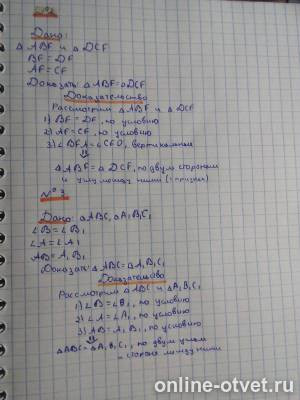 Дано:
△ ABF и △ DCF
BF = DF
AF = CF
Доказать: △ ABF = △ DCF
Доказательство
Рассмотрим △ ABF и △ DCF
1) BF = DF, по условию
2) AF = CF, по условию
3) ∠ BFA = ∠ CFD, вертикальные
⇓
△ ABF = △ DCF, по двум сторонам
и углу между ними (1 признак)
№ 3
Дано: △ABC, △A₁B₁C₁
∠B = ∠B₁
∠A = ∠A₁
AB = A₁B₁
Доказать: △ ABC = △A₁B₁C₁
Доказательство
Рассмотрим △ ABC и △A₁B₁C₁
1) ∠B = ∠B₁, по условию
2) ∠A = ∠A₁, по условию
3) AB = A₁B₁, по условию
⇓
△ABC = △A₁B₁C₁, по двум углам
и стороне между ними
online-otvet.ru